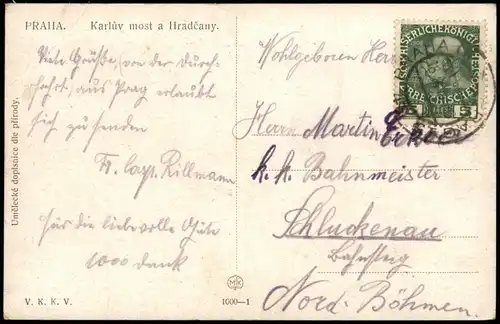 PRAHA. Karlův most a Hradčany.
Viele Grüße, von der Durch-
fahrt, aus Prag erlaubt
sich zu senden
Fr. Capt. Rillmann
Für die liebevolle Güte
1000 Dank
Umělecké dopisnice dle přírody.
V. K. K. V.
MK
1000—1
Wohlgeboren Herr
Herrn Martin
k. k. Bahnmeister
Schluckenau
Bahnsteig
Nord-Böhmen.
5